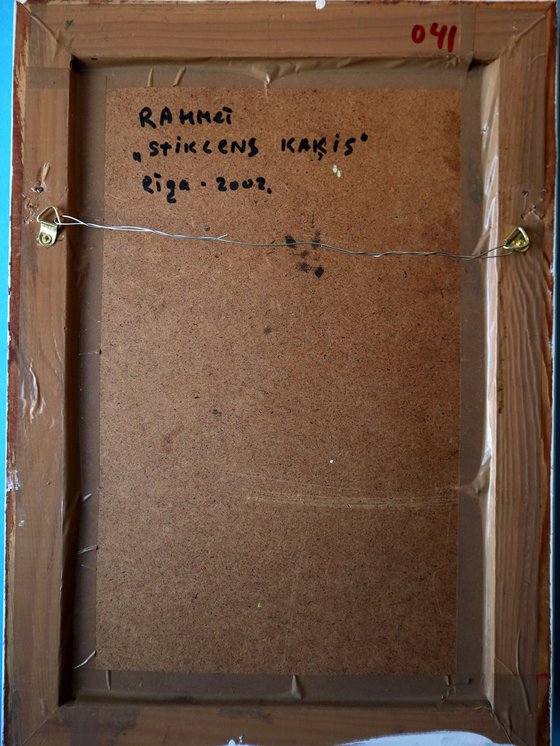 041
RAHMEĪ
„STIKLENS KAĶIS"
Rīga - 2002.